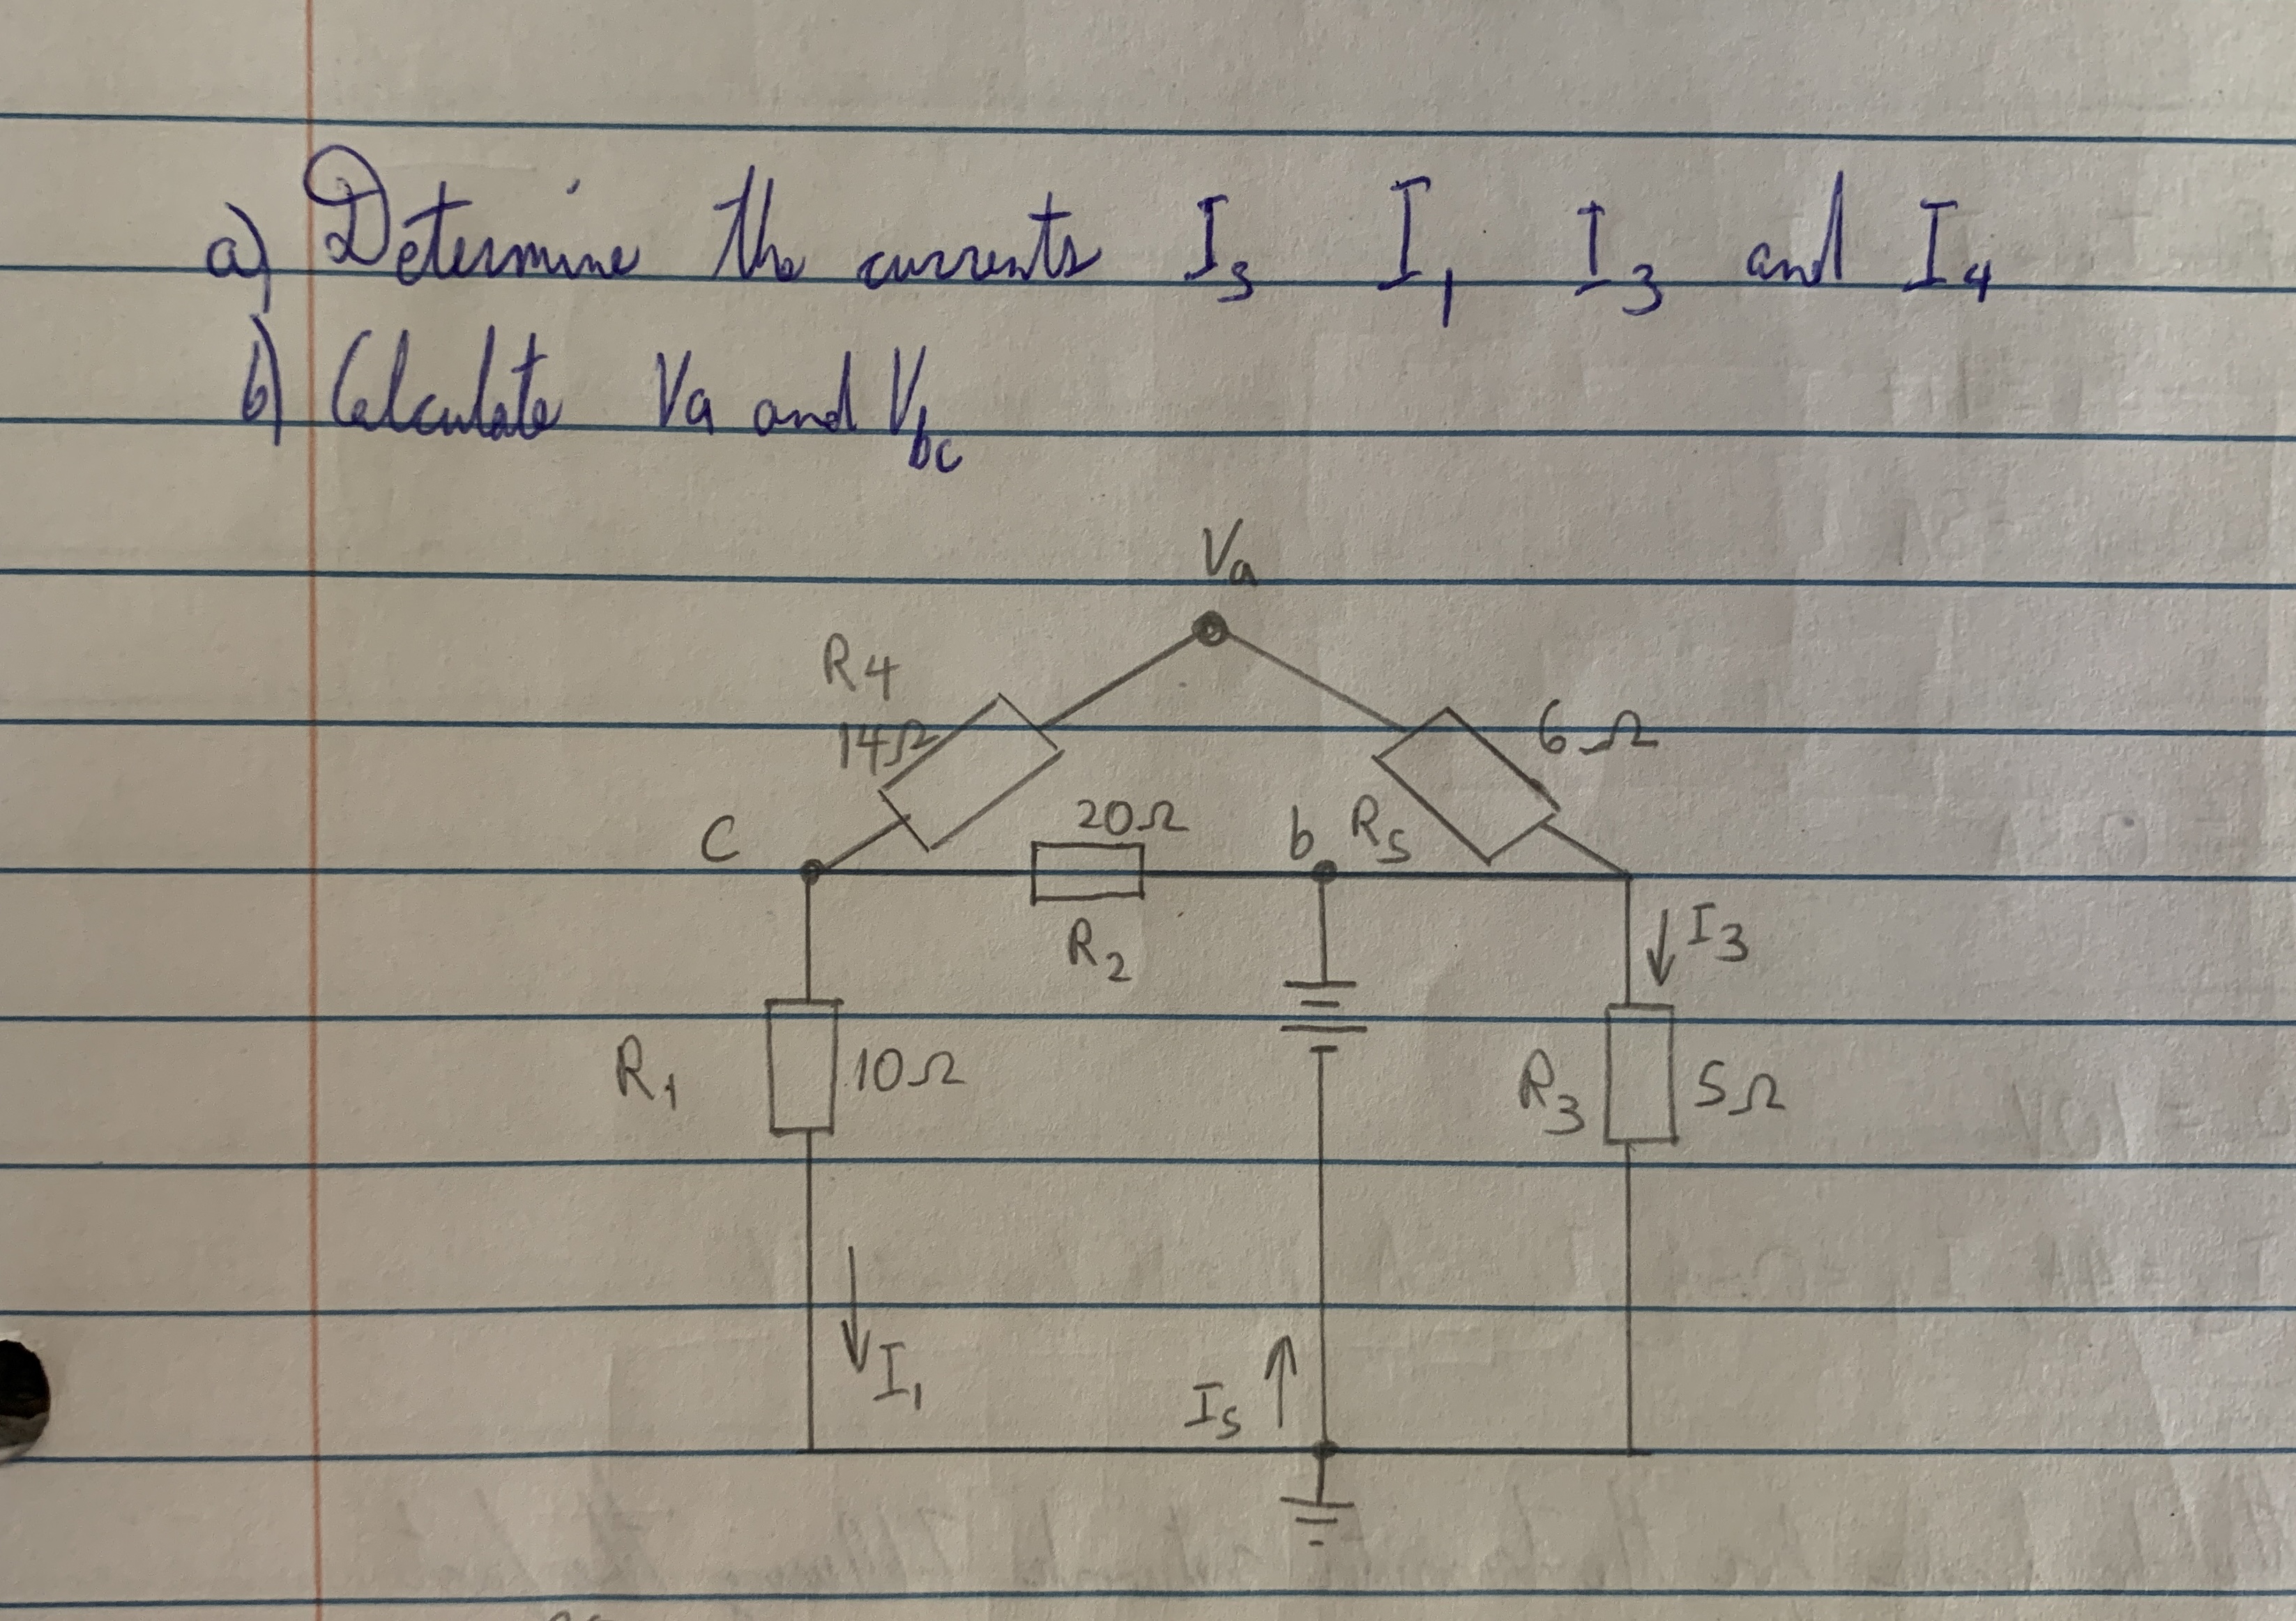 a) Determine the currents Is I1 I3 and I4
b) Calculate Va and Vbc
Va
R4
14Ω
6Ω
C
20Ω
b
R5
R2
I3
R1
10Ω
R3
5Ω
I1
Is